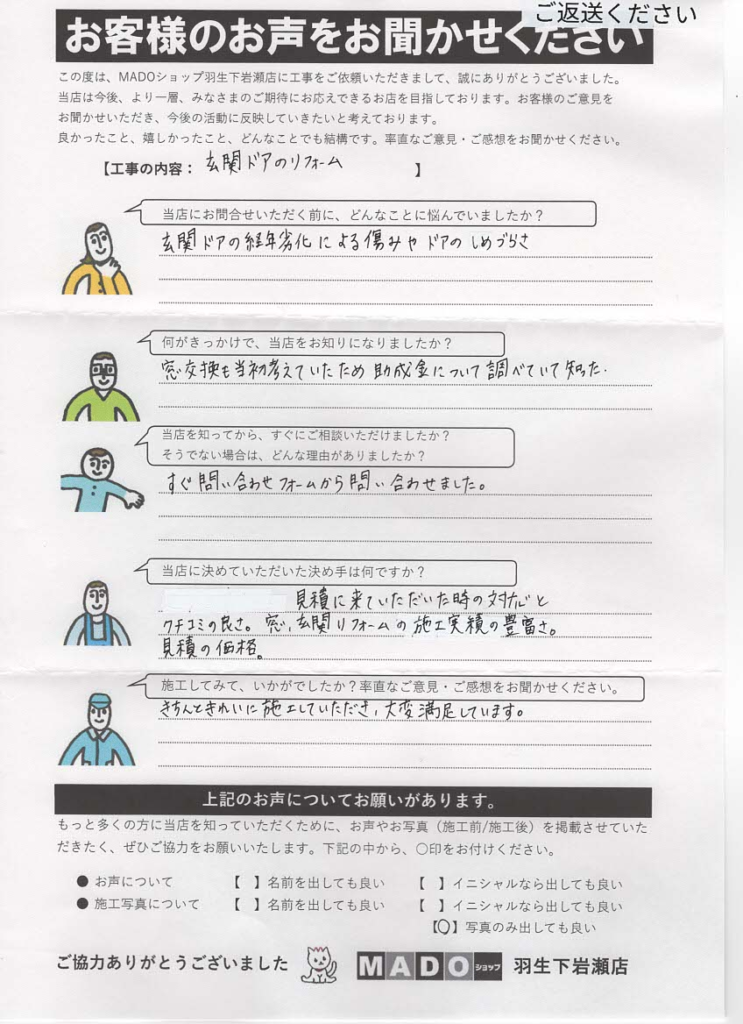 ご返送ください
お客様のお声をお聞かせください
この度は、MADOショップ羽生下岩瀬店に工事をご依頼いただきまして、誠にありがとうございました。
当店は今後、より一層、みなさまのご期待にお応えできるお店を目指しております。お客様のご意見を
お聞かせいただき、今後の活動に反映していきたいと考えております。
良かったこと、嬉しかったこと、どんなことでも結構です。率直なご意見・ご感想をお聞かせください。
【工事の内容： 玄関ドアのリフォーム 】
当店にお問合せいただく前に、どんなことに悩んでいましたか？
玄関ドアの経年劣化による傷みやドアのしめづらさ
何がきっかけで、当店をお知りになりましたか？
窓交換も当初考えていたため助成金について調べていて知った.
当店を知ってから、すぐにご相談いただけましたか？
そうでない場合は、どんな理由がありましたか？
すぐ問い合わせフォームから問い合わせました。
当店に決めていただいた決め手は何ですか？
見積に来ていただいた時の対応と
クチコミの良さ。窓、玄関リフォームの施工実積の豊富さ。
見積の価格。
施工してみて、いかがでしたか？率直なご意見・ご感想をお聞かせください。
きちんときれいに施工していただき、大変満足しています。
上記のお声についてお願いがあります。
もっと多くの方に当店を知っていただくために、お声やお写真（施工前/施工後）を掲載させていた
だきたく、ぜひご協力をお願いいたします。下記の中から、〇印をお付けください。
● お声について 【 】名前を出しても良い 【 】イニシャルなら出しても良い
● 施工写真について 【 】名前を出しても良い 【 】イニシャルなら出しても良い
【〇】写真のみ出しても良い
ご協力ありがとうございました MADOショップ 羽生下岩瀬店